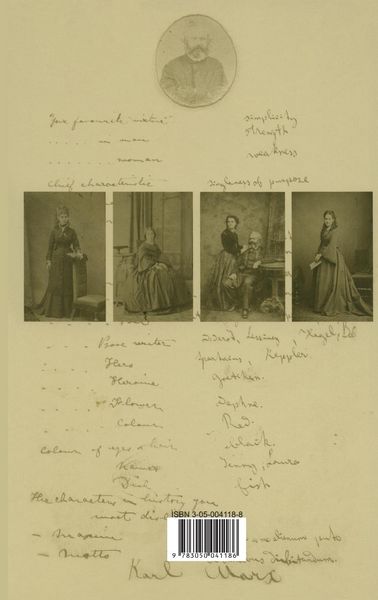 Your favourite virtue simplicity
. . . . . in man strength
. . . . . . . woman weakness
Chief characteristic singleness of purpose
. . . . . Prose writer Diderot, Lessing, Hegel,
. . . . . Hero Spartacus, Keppler.
. . . . . Heroine Gretchen.
. . . . . Flower Daphne.
. . . . . Colour Red.
Colour of eyes & hair black.
. . . . . Names Jenny, Laura
. . . . . Dish fish
The characters in history you
most
ISBN 3-05-004118-8
- Maxime
- Motto
9 783050 041186
Karl Marx